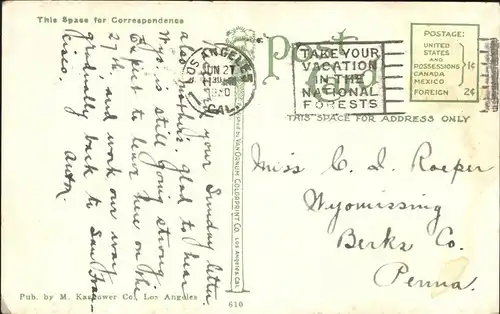 This Space for Correspondence
Rec'd your Sunday letter
also mother's. Glad to hear
Wyo. is still going strong.
Expect to leave here on the
27th and work our way
gradually back to San Fran-
cisco.
Anton.
Pub. by M. Kashower Co., Los Angeles
610
Post
LOS ANGELES
JUN 27
CAL.
TAKE YOUR
VACATION
IN THE
NATIONAL
FORESTS
POSTAGE:
UNITED
STATES
AND
POSSESSIONS
CANADA
MEXICO
1¢
FOREIGN 2¢
THIS SPACE FOR ADDRESS ONLY
Miss C. I. Roeper
Wyomissing
Berks Co.
Penna.
VAN ORNUM COLORPRINT CO. LOS ANGELES, CAL.